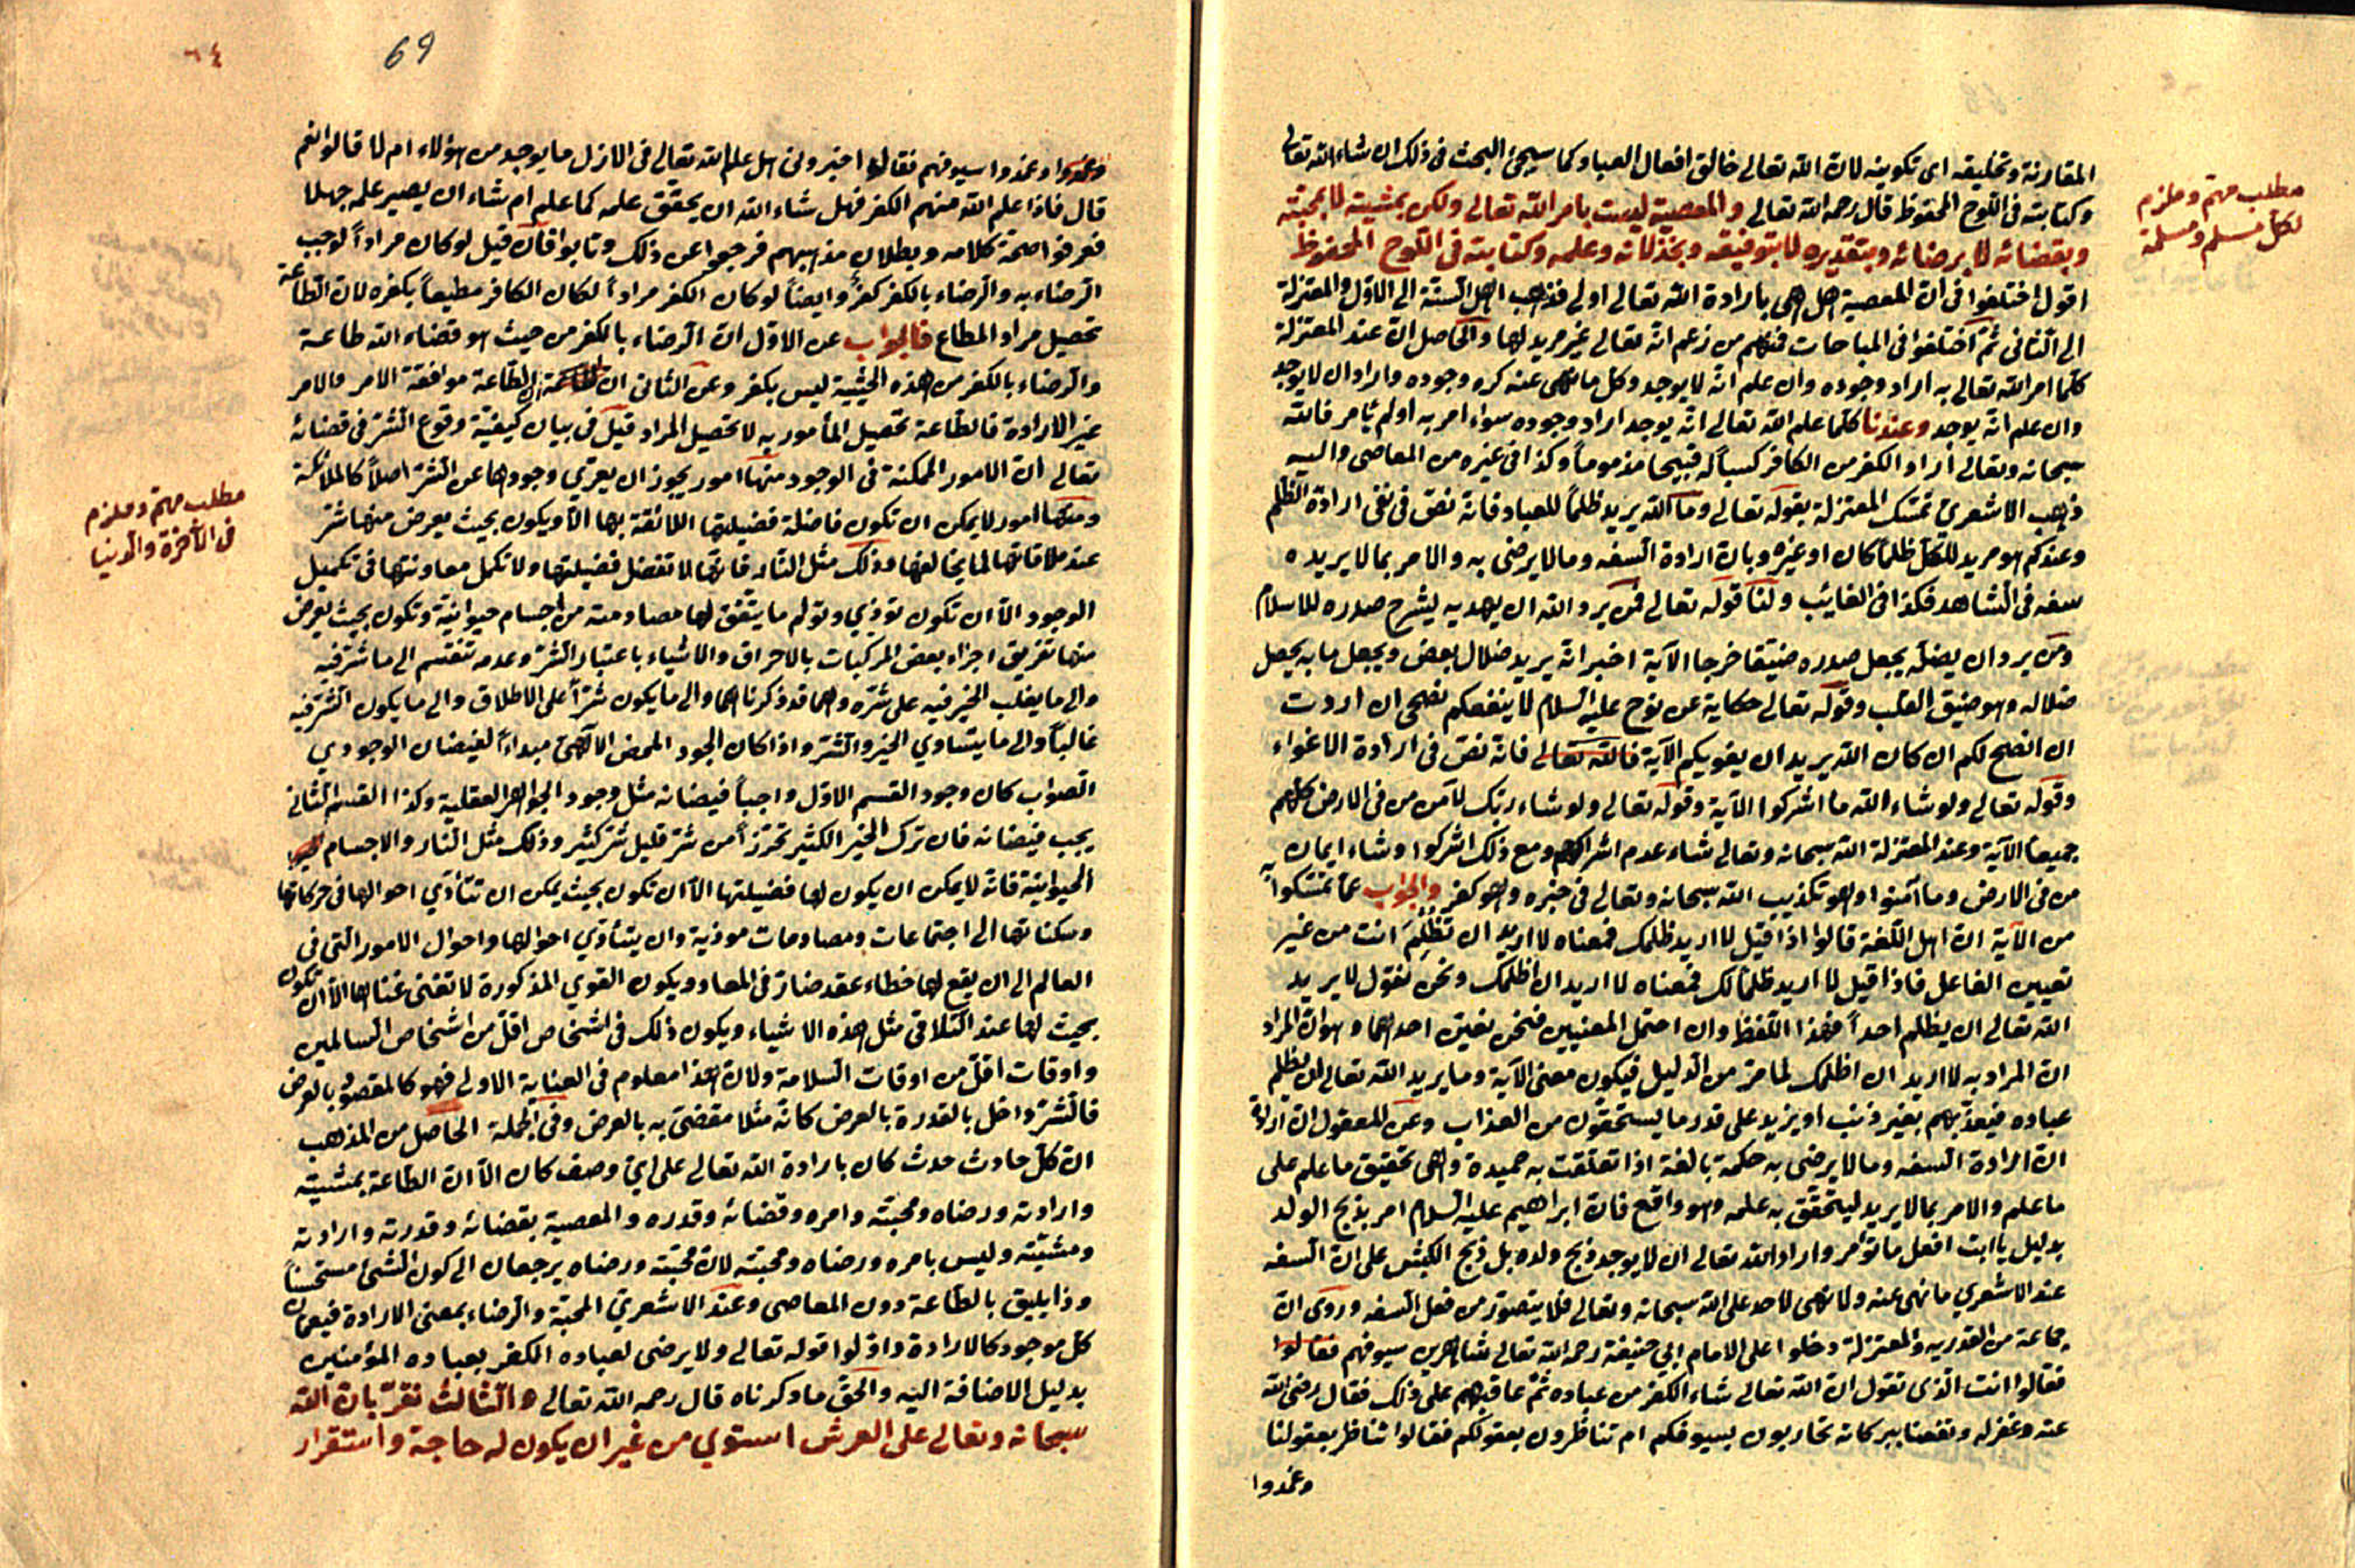 المقارنة وتخليقه اى تكوينه لان الله تعالى خالق افعال العباد كما سيجئ البحث فى ذلك ان شاء الله تعالى
وكتابته فى اللوح المحفوظ قال رحمه الله تعالى والمعصية ليست بامر الله تعالى ولكن بمشيته لا بمحبته
وبقضائه لا برضائه وبتقديره لا بتوفيقه وبخذلانه وعلمه وكتابته فى اللوح المحفوظ
اقول اختلفوا فى ان المعصية هل هى بارادة الله تعالى اولى فذهب اهل السنة الى الاول والمعتزلة
الى الثانى ثم اختلفوا فى المباحات فمنهم من زعم انه تعالى غير مريد لها والحاصل ان عند المعتزلة
كلما امر الله تعالى به اراد وجوده وان علم انه لا يوجد وكل ما نهى عنه كره وجوده واراد ان لا يوجد
وان علم انه يوجد وعندنا كلما علم الله تعالى انه يوجد اراد وجوده سواء امر به اولم يامر فالله
سبحانه وتعالى اراد الكفر من الكافر كسباً له قبيحا مذموماً وكذا فى غيره من المعاصى واليه
ذهب الاشعرى تمسك المعتزلة بقوله تعالى وما الله يريد ظلماً للعباد فانه نص فى نفى ارادة الظلم
وعندكم هو مريد للكل ظلماً كان او غيره وبان ارادة السفه وما لا يرضى به والامر بما لا يريده
سفه فى الشاهد فكذا فى الغائب ولنا قوله تعالى فمن يرد الله ان يهديه يشرح صدره للاسلام
ومن يرد ان يضله يجعل صدره ضيقا حرجا الآية اخبر انه يريد ضلال بعض ويجعل ما به يحصل
ضلاله وهو ضيق القلب وقوله تعالى حكاية عن نوح عليه السلام لا ينفعكم نصحى ان اردت
ان انصح لكم ان كان الله يريد ان يغويكم الآية فالله تعالى فانه نص فى ارادة الاغواء
وقوله تعالى ولو شاء الله ما اشركوا الآية وقوله تعالى ولو شاء ربك لآمن من فى الارض كلهم
جميعا الآية وعند المعتزلة الله سبحانه وتعالى شاء عدم اشراكهم ومع ذلك اشركوا وشاء ايمان
من فى الارض وما آمنوا وهو تكذيب الله سبحانه وتعالى فى خبره وهو كفر والجواب عما تمسكوا به
من الآية ان اهل اللغة قالوا اذا قيل لا اريد ظلمك فمعناه لا اريد ان تظلم انت من غير
تعيين الفاعل فاذا قيل لا اريد ظلماً لك فمعناه لا اريد ان اظلمك ونحن نقول لا يريد
الله تعالى ان يظلم احداً فهذا اللفظ وان احتمل المعنيين فنحن نعين احدهما وهو ان المراد
ان المراد به لا اريد ان اظلمك لما مر من الدليل فيكون معنى الآية وما يريد الله تعالى ان يظلم
عباده فيعذبهم بغير ذنب او يزيد على قدر ما يستحقون من العذاب وعن المعقول ان ارادة
ان ارادة السفه وما لا يرضى به حكمة بالغة اذا تعلقت به حميدة وهى تحقيق ما علم على
ما علم والامر بما لا يريد ليتحقق به علمه وهو واقع فان ابراهيم عليه السلام امر بذبح الولد
بدليل يا ابت افعل ما تؤمر واراد الله تعالى ان لا يوجد ذبح ولده بل ذبح الكبش على ان السفه
عند الاشعري ما نهى عنه ولا نهى لاحد على الله سبحانه وتعالى فلا يتصور من فعل السفه وروى ان
جماعة من القدريه والمعتزلة دخلوا على الامام ابي حنيفة رحمه الله تعالى شاهرين سيوفهم فقالوا
فقالوا انت الذى تقول ان الله تعالى شاء الكفر من عباده ثم عاقبهم على ذلك فقال رضى الله
عنه وغفرله ونفعنا ببركاته تحاربون بسيوفكم ام تناظرون بعقولكم فقالوا نناظر بعقولنا
وغمدوا
مطلب مهم وملزم
لكل مسلم ومسلمة
٦٤
69
وغمدوا وغمدوا سيوفهم فقال اخبرونى هل علم الله تعالى فى الازل ما يوجد من هؤلاء ام لا قالوا نعم
قال فاذا علم الله منهم الكفر فهل شاء الله ان يحقق علمه كما علم ام شاء ان يصير علمه جهلا
فعرفوا صحة كلامه وبطلان مذهبهم فرجعوا عن ذلك وتابوا فان قيل لو كان مراداً لوجب
الرضاء به والرضاء بالكفر كفر وايضاً لو كان الكفر مراداً لكان الكافر مطيعاً بكفره لان الطاعة
تحصيل مراد المطاع فالجواب عن الاول ان الرضاء بالكفر من حيث هو قضاء الله طاعة
والرضاء بالكفر من هذه الحيثية ليس بكفر وعن الثانى ان الطاعة موافقة الامر والامر
غير الارادة فالطاعة تحصيل المأمور به لا تحصيل المراد قيل فى بيان كيفية وقوع الشر فى قضائه
تعالى ان الامور الممكنة فى الوجود منها امور يجوز ان يعرى وجودها عن الشر اصلاً كالملائكة
ومنها امور لا يمكن ان تكون فاضلة فضيلتها اللائقة بها الا ويكون بحيث يعرض منها شر
عند ملاقاتها لما يخالفها وذلك مثل النار فانها لا تفضل فضيلتها ولا تكمل معاونتها فى تكميل
الوجود الا ان تكون تؤذي وتولم ما يتفق لها مصادمته من اجسام حيوانية وتكون بحيث يعرض
منها تفريق اجزاء بعض المركبات بالاحراق والاشياء باعتبار الشر وعدمه تنقسم الى ما شر فيه
والى ما يغلب الخير فيه على شره وهما قد ذكرناهما والى ما يكون شراً على الاطلاق والى ما يكون الشر فيه
غالباً والى ما يتساوي الخير والشر واذا كان الجود المحض الالهى مبداءً لفيضان الوجودي
الصواب كان وجود القسم الاول واجباً فيضانه مثل وجود الجواهر العقلية وكذا القسم الثانى
يجب فيضانه فان ترك الخير الكثير تحرزاً من شر قليل شر كثير وذلك مثل النار والاجسام
الحيوانية فانه لا يمكن ان يكون لها فضيلتها الا ان تكون بحيث يمكن ان تتأدي احوالها فى حركاتها
وسكناتها الى اجتماعات ومصادمات موذية وان يتأدي احوالها واحوال الامور التى فى
العالم الى ان يقع لها خطاء عقد ضار فى المعاد ويكون القوي المذكورة لا تغنى غناها الا ان تكون
بحيث لها عند التلاقى مثل هذه الاشياء ويكون ذلك فى اشخاص اقل من اشخاص السالمين
واوقات اقل من اوقات السلامة ولان هذا معلوم فى العناية الاولى فهو كالمقصود بالعرض
فالشر داخل بالقدرة بالعرض كانه مثلا مقضى به بالعرض وفى الجملة الحاصل من المذهب
ان كل حادث حدث كان بارادة الله تعالى على اي وصف كان الا ان الطاعة بمشيته
وارادته ورضاه ومحبته وامره وقضائه وقدره والمعصية بقضائه وقدرته وارادته
ومشيته وليس بامره ورضاه ومحبته لان محبته ورضاه يرجعان الى كون الشئ مستحسناً
وذا يليق بالطاعة دون المعاصى وعند الاشعري المحبة والرضاء بمعنى الارادة فيعمان
كل موجود كالارادة واولوا قوله تعالى ولا يرضى لعباده الكفر بعباده المؤمنين
بدليل الاضافة اليه والحق ما ذكرناه قال رحمه الله تعالى والثالث نقر بان الله
سبحانه وتعالى على العرش استوي من غير ان يكون له حاجة واستقرار
مطلب مهم وملزم
فى الآخرة والدنيا